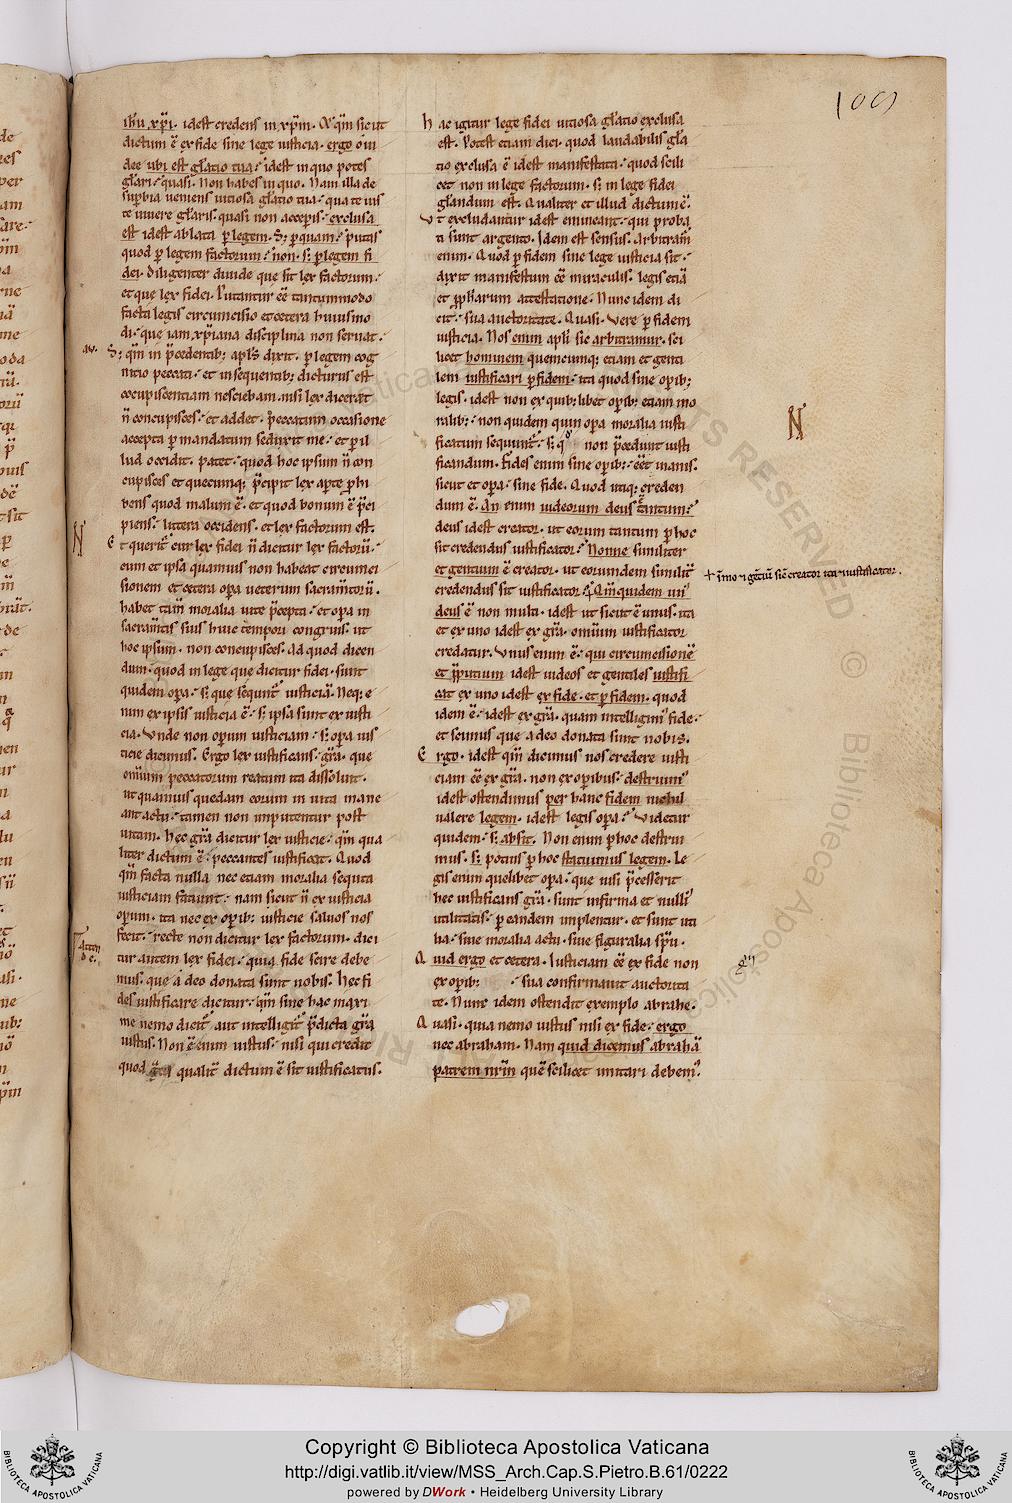 109
ih̅u xp̅i. idest credens in xp̅m. Et qm̅ sicut
dictum ē ex fide sine lege iusticia. ergo o iu
dee ubi est gl̅atio tua; idest in quo potes
gl̅ari; quasi. Non habes in quo. Nam illa de
sup̅bia ueniens uitiosa gl̅atio tua; qua te ius
te uiuere gl̅aris. quasi non acceperis; exclusa
est idest ablata p̲ legem. S; p̲ quam; putas
quod p̲ legem factorum; non. s; p̲ legem fi
dei. Diligenter diuide que sit lex factorum.
et que lex fidei. Putantur ēe̅ tantummodo
facta legis circumcisio et cetera huiusmo
di; que iam xp̅iana disciplina non seruat.
au.
S; qm̅ in p̅cedentib; apl̅s dixit. p̲ legem cog
nitio peccati. et in sequentib; dicturus est
concupiscentiam nesciebam. nisi lex diceret
n̅ concupisces; et addet. Peccatum occasione
accepta p̲ mandatum seduxit me. et p̲ il
lud occidit. patet; quod hoc ipsum n̅ con
cupisces et quecumq; p̅cipit lex aperte phi
bens quod malum ē. et quod bonum ē p̅ci
piens; littera occidens. et lex factorum est.
N
Et querit̅ cur lex fidei n̅ dicitur lex factoru̅;
cum et ipsa quamuis non habeat circumci
sionem et cetera opa ueterum sacram̅toru̅.
habet tam̅ moralia uite p̅cepta; et opa in
sacram̅tis suis huic tempori congruis. ut
hoc ipsum. non concupisces. Ad quod dicen
dum; quod in lege que dicitur fidei; sunt
quidem opa; s; que sequn̅t̅ iusticia̅. Neq; e
nim ex ipsis iusticia ē; s; ipsa sunt ex iusti
cia. Vnde non operum iusticiam; s; opa ius
ticie dicimus. Ergo lex iustificans; gr̅a. que
omium peccatorum reatum ita dissoluit.
ut quamuis quedam eorum in uita mane
ant actu; tamen non imputentur post
uitam. Hec gr̅a dicitur lex iusticie; qm̅ qua
liter dictum ē; peccantes iustificat. Quod
qm̅ facta nulla nec etiam moralia sequta
iusticiam faciunt; nam sicut n̅ ex iusticia
operum. ita nec ex operib; iusticie saluos nos
fecit; recte non dicitur lex factorum. dici
Atten
de.
tur autem lex fidei; quia fide scire debe
mus. que a deo donata sunt nobis. Hec fi
des iustificare dicitur; qm̅ sine hac maxi
me nemo dicit̅ aut intelligit̅ p̅dicta gr̅a
iustus. Non ē enim iustus; nisi qui credit
quod qualit̅ dictum ē sit iustificatus.
Hac igitur lege fidei uitiosa gl̅atio exclusa
est. Potest etiam dici. quod laudabilis gl̅a
tio exclusa ē idest manifestata; quod scili
cet non in lege factorum. s; in lege fidei
gl̅andum est. Qualiter et illud dictum ē.
Vt excludantur idest emineant; qui proba
ti sunt argento. Idem est sensus. Arbitram̅
enim. Quod p̲ fidem sine lege iusticia sit;
dixit manifestum ēe̅ miraculis. legis etia̅
et p̅ph̅arum attestatione. Nunc idem di
cit; sua auctoritate. Quasi. Vere p̲ fidem
iusticia. Nos enim apl̅i sic arbitramur. sci
licet hominem quemcumq; etiam et genti
lem iustificari p̲ fidem; ita quod sine operib;
legis. idest non ex quib; libet operib; etiam mo
ralib;; non quidem quin opa moralia iusti
ficatum sequunt̅; s; qo̅ non p̅cedunt iusti
ficandum. Fides enim sine operib; ēet̅ inanis.
sicut et opa; sine fide. Quod utiq; creden
dum ē. An enim iudeorum deus tantum;
deus idest creator. ut eorum tantum p̲ hoc
sit credendus iustificator; Nonne similiter
et gentium ē creator. ut eorumdem similit̅
credendus sit iustificator; Qm̅ quidem un̕
deus ē non multi. idest ut sicut ē unus. ita
et ex uno idest ex gr̅a. omium iustificator
credatur. Vnus enim ē; qui circumcisione̅
et p̅putium idest iudeos et gentiles iustifi
cat ex uno idest ex fide. et p̲ fidem. quod
idem ē; idest ex gr̅a. quam intelligim̕ fide;
et scimus que a deo donata sunt nobis.
Ergo. idest qm̅ dicimus nos credere iusti
ciam ēe̅ ex gr̅a. non ex operibus; destruim̕
idest ostendimus per hanc fidem nichil
ualere legem. idest legis opa; Videtur
quidem. s; absit. Non enim p̲ hoc destrui
mus. s; potius p̲ hoc statuimus legem. Le
gis enim quelibet opa; que nisi p̅cesserit
hec iustificans gr̅a. sunt infirma et nulli̕
utilitatis; p̲ eandem implentur. et sunt uti
lia; siue moralia actu. siue figuralia sp̅u.
Quid ergo et cetera. Iusticiam ēe̅ ex fide non
ex operib; ; sua confirmauit auctorita
te. Nunc idem ostendit exemplo abrahe.
Quasi. quia nemo iustus nisi ex fide; ergo
nec abraham. Nam quid dicemus abraha̅
patrem nr̅m que̅ scilicet imitari debem̕.
N
+ i̅mo et ge̅tiu̅ sic̅ creator ita et iustificator.
Copyright © Biblioteca Apostolica Vaticana
http://digi.vatlib.it/view/MSS_Arch.Cap.S.Pietro.B.61/0222
powered by DWork • Heidelberg University Library